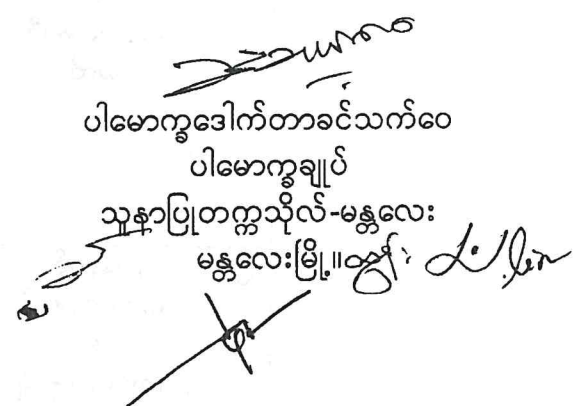 ပါမောက္ခဒေါက်တာခင်သက်ဝေ
ပါမောက္ခချုပ်
သူနာပြုတက္ကသိုလ်-မန္တလေး
မန္တလေးမြို့။